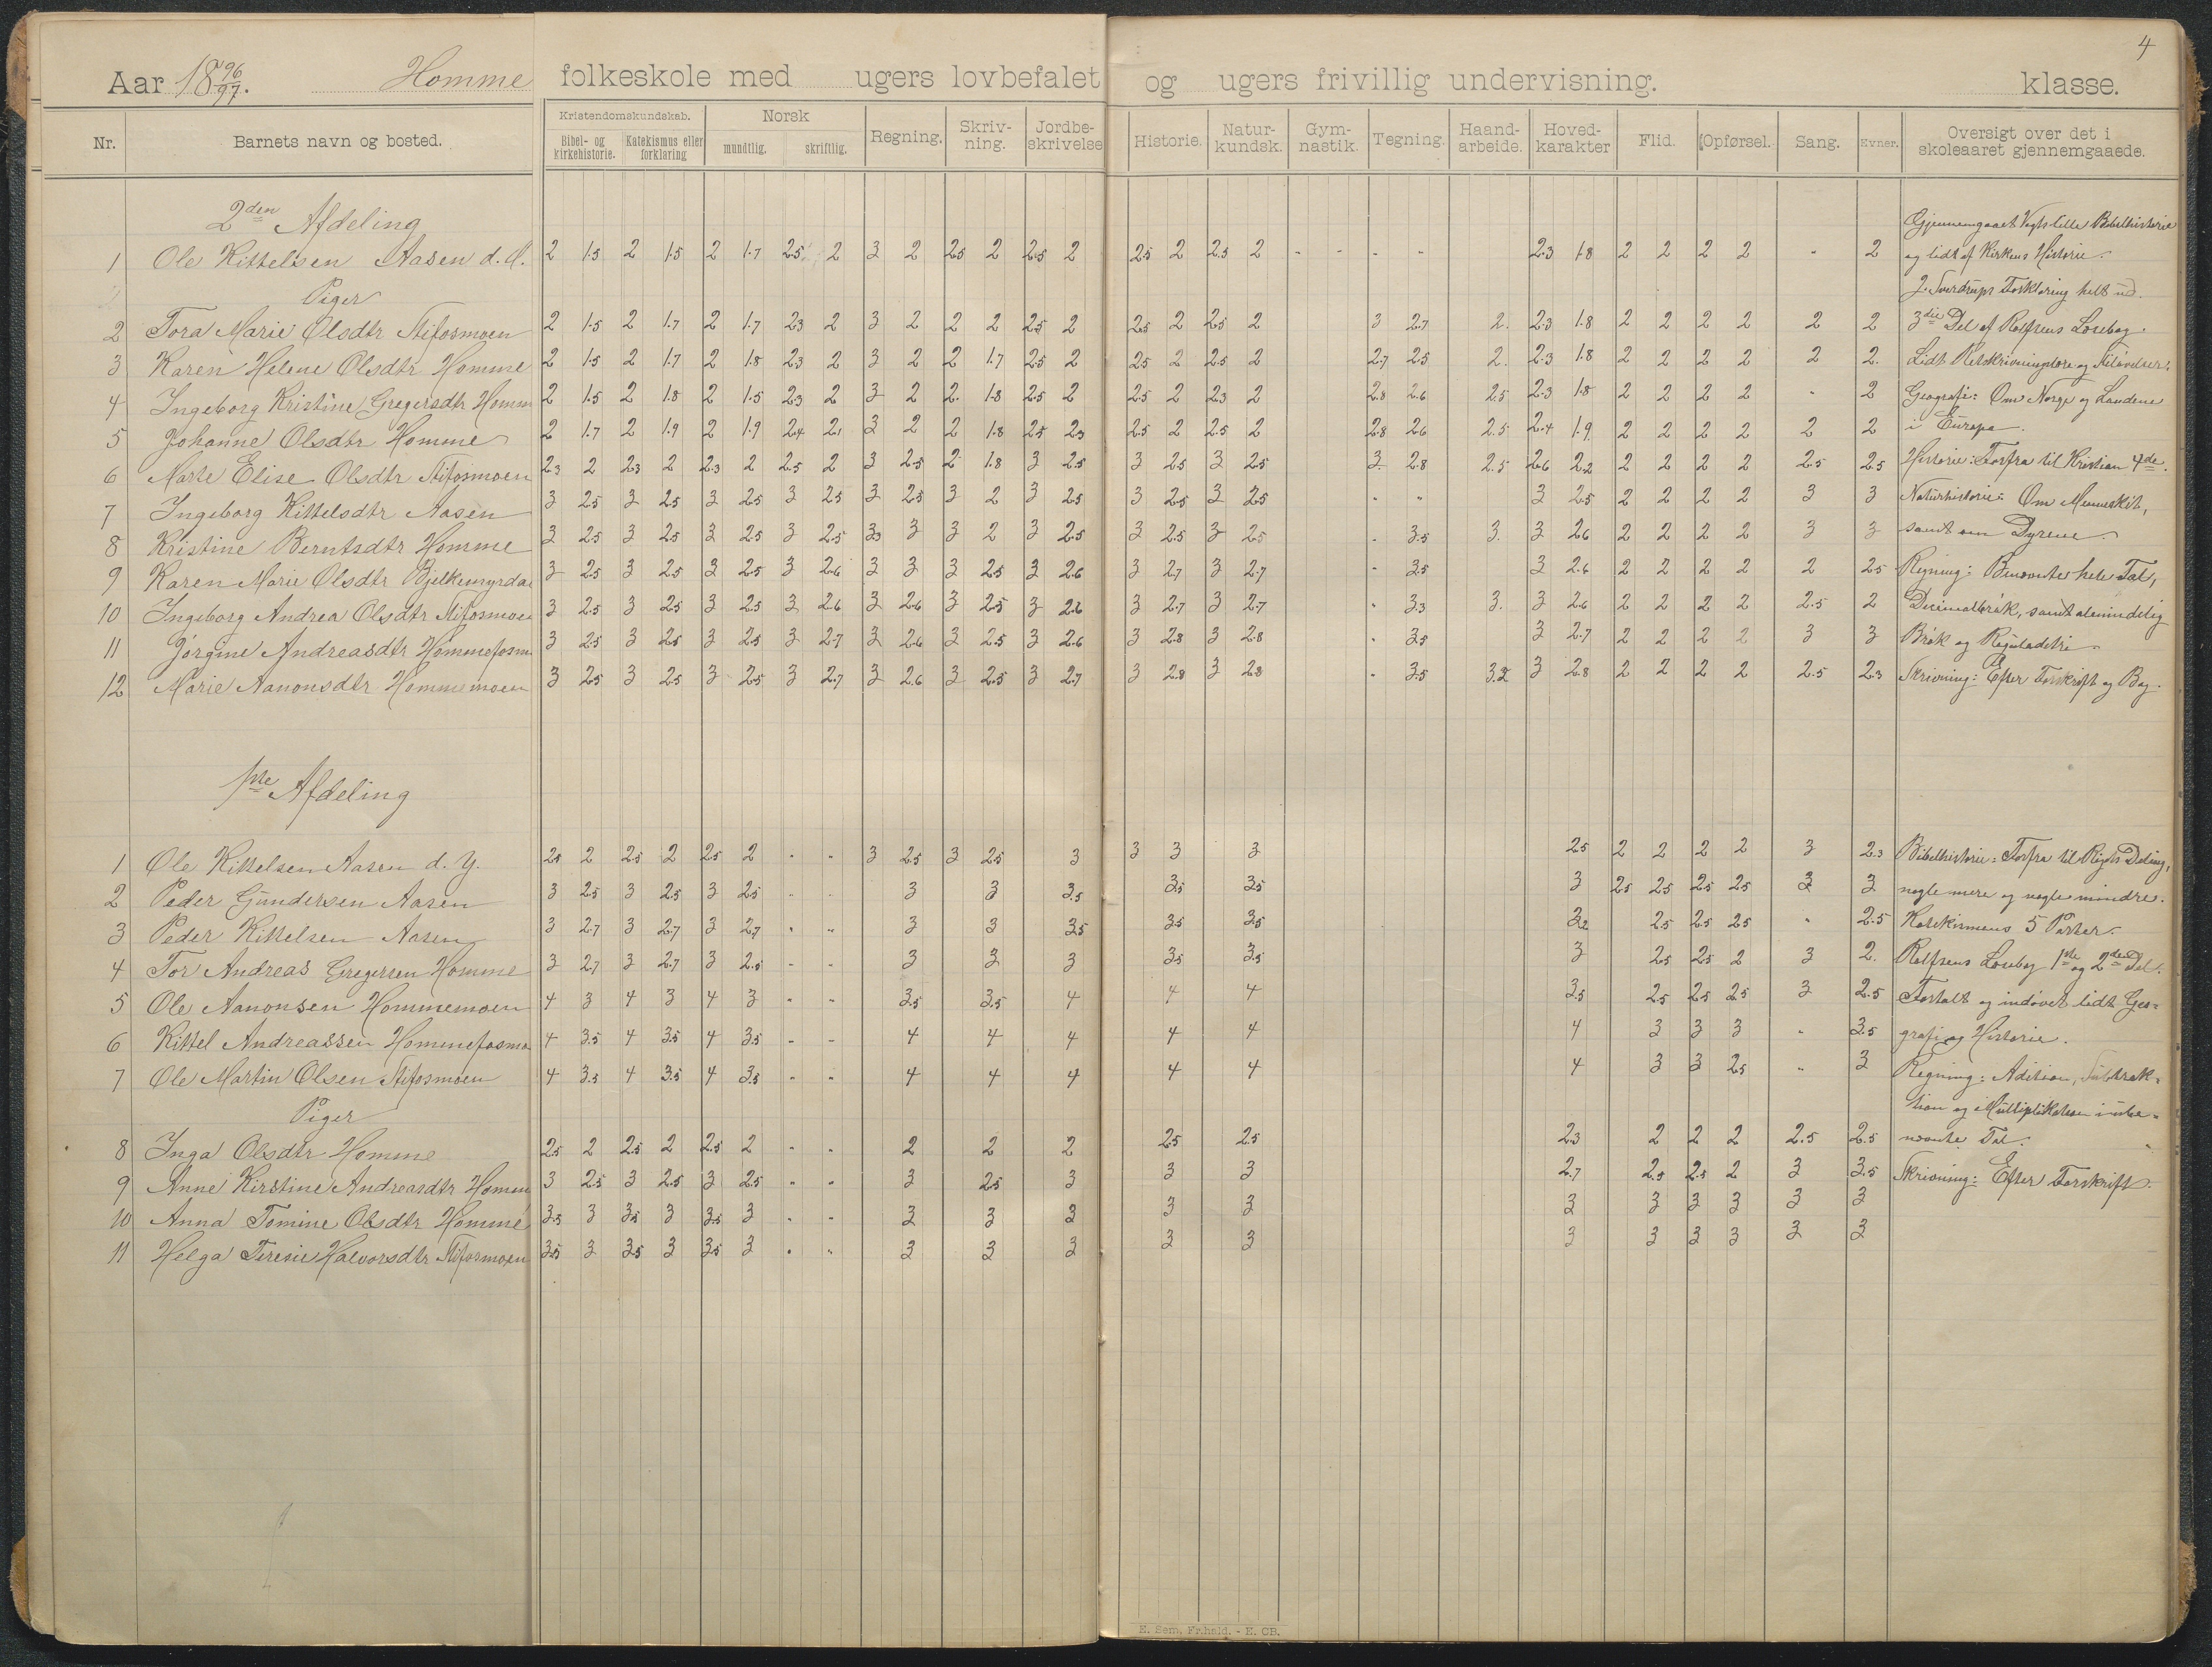 4
Aar 1896/97. Homme folkeskole med ugers lovbefalet og ugers frivillig undervisning. klasse.
Nr. Barnets navn og bosted. Kristendomskundskab. Bibel- og kirkehistorie. Katekismus eller forklaring Norsk mundtlig. skriftlig. Regning. Skriv-ning. Jordbe-skrivelse Historie. Natur-kundsk. Gym-nastik. Tegning. Haand-arbeide. Hoved-karakter Flid. Opførsel. Sang. Evner. Oversigt over det i skoleaaret gjennemgaaede.
2den Afdeling Gjennemgaaet Vogts lille Bibelhistorie
1 Ole Kittelsen Aasen d. Æ. 2 1.5 2 1.5 2 1.7 2.5 2 3 2 2.5 2 2.5 2 2.5 2 2.5 2 - - - - 2.3 1.8 2 2 2 2 - 2 og lidt af Kirkens Historie.
Piger J. Sverdrups Forklaring helt ud.
2 Tora Marie Olsdtr Stifosmoen 2 1.5 2 1.7 2 1.7 2.3 2 3 2 2 2 2.5 2 2.5 2 2.5 2 3 2.7 2. 2.3 1.8 2 2 2 2 2 2 3die Del af Rolfsens Læsebog.
3 Karen Helene Olsdtr Homme 2 1.5 2 1.7 2 1.8 2.3 2 3 2 2 1.7 2.5 2 2.5 2 2.5 2 2.7 2.5 2. 2.3 1.8 2 2 2 2 2 2. Lidt Retskrivningslære og Stiløvelser.
4 Ingeborg Kristine Gregersdtr Homm 2 1.5 2 1.8 2 1.5 2.3 2 3 2 2. 1.8 2.5 2 2.5 2 2.3 2 2.8 2.6 2.5 2.3 1.8 2 2 2 2 - 2 Geografi: Om Norge og Landene
5 Johanne Olsdtr Homme 2 1.7 2 1.9 2 1.9 2.4 2.1 3 2 2 1.8 2.5 2.3 2.5 2 2.5 2 2.8 2.6 2.5 2.4 1.9 2 2 2 2 2 2 i Europa.
6 Marte Elise Olsdtr Stifosmoen 2.3 2 2.3 2 2.3 2 2.5 2 3 2.5 2 1.8 3 2.5 3 2.5 3 2.5 3 2.8 2.5 2.6 2.2 2 2 2 2 2.5 2.5 Historie: Forfra til Kristian 4de.
7 Ingeborg Kittelsdtr Aasen 3 2.5 3 2.5 3 2.5 3 2.5 3 2.5 3 2 3 2.5 3 2.5 3 2.5 - - 3 2.5 2 2 2 2 3 3 Naturhistorie: Om Mennesket,
8 Kristine Berntsdtr Homme 3 2.5 3 2.5 3 2.5 3 2.5 3.3 3 3 2 3 2.5 3 2.5 3 2.5 - 3.5 3. 3 2.6 2 2 2 2 3 3 samt om Dyrene.
9 Karen Marie Olsdtr Bjelkemyrdal 3 2.5 3 2.5 3 2.5 3 2.6 3 3 3 2.5 3 2.6 3 2.7 3 2.7 - 3.5 3 2.6 2 2 2 2 2 2.5 Regning: Benævnte hele Tal,
10 Ingeborg Andrea Olsdtr Stifosmoen 3 2.5 3 2.5 3 2.5 3 2.6 3 2.6 3 2.5 3 2.6 3 2.7 3 2.7 - 3.3 3. 3 2.6 2 2 2 2 2.5 2 Decimalbrøk, samt almindelig
11 Jørgine Andreasdtr Hommefosm 3 2.5 3 2.5 3 2.5 3 2.7 3 2.6 3 2.5 3 2.6 3 2.8 3 2.8 - 3.5 3 2.7 2 2 2 2 3 3 Brøk og Reguladetri.
12 Marie Aanonsdtr Hommemoen 3 2.5 3 2.5 3 2.5 3 2.7 3 2.6 3 2.5 3 2.7 3 2.8 3 2.8 - 3.5 3.2 3 2.8 2 2 2 2 2.5 2.3 Skrivning: Efter Forskrift og Bog.
1ste Afdeling
1 Ole Kittelsen Aasen d. Y. 2.5 2 2.5 2 2.5 2 - - 3 2.5 3 2.5 3 3 3 3 2.5 2 2 2 2 3 2.3 Bibelhistorie: Forfra til Rigets Deling,
2 Peder Gundersen Aasen 3 2.5 3 2.5 3 2.5 - - 3 3 3.5 3.5 3.5 3 2.5 2.5 2.5 2.5 3 3 nogle mere og nogle mindre.
3 Peder Kittelsen Aasen 3 2.7 3 2.7 3 2.7 - - 3 3 3.5 3.5 3.5 3.2 2.5 2.5 2.5 - 2.5 Katekismens 5 Parter.
4 Tor Andreas Gregersen Homme 3 2.7 3 2.7 3 2.5 - - 3 3 3 3.5 3.5 3 2.5 2.5 2 3 2. Rolfsens Læsebog 1ste og 2den Del.
5 Ole Aanonsen Hommemoen 4 3 4 3 4 3 - - 3.5 3.5 4 4 4 3.5 2.5 2.5 2.5 3 2.5 Fortalt og indøvet lidt Geo=
6 Kittel Andreassen Hommefosmo 4 3.5 4 3.5 4 3.5 - - 4 4 4 4 4 4 3 3 3 - 3.5 grafi og Historie.
7 Ole Martin Olsen Stifosmoen 4 3.5 4 3.5 4 3.5 - - 4 4 4 4 4 4 3 3 2.5 - 3 Regning: Adition, Subtrak=
Piger tion og Multiplikation i ube=
8 Inga Olsdtr Homme 2.5 2 2.5 2 2.5 2 - - 2 2 2 2.5 2.5 2.3 2 2 2 2.5 2.5 nævnte Tal.
9 Anne Kirstine Andreasdtr Homm 3 2.5 3 2.5 3 2.5 - - 3 2.5 3 3 3 2.7 2.5 2.5 2 3 3.5 Skrivning: Efter Forskrift.
10 Anna Tomine Olsdtr Homme 3.5 3 3.5 3 3.5 3 - - 3 3 3 3 3 3 3 3 3 3 3
11 Helga Teresie Halvorsdtr Stifosmoen 3.5 3 3.5 3 3.5 3 - - 3 3 3 3 3 3 3 3 3 3 3
E. Sem, Fr.hald. - E. CB.